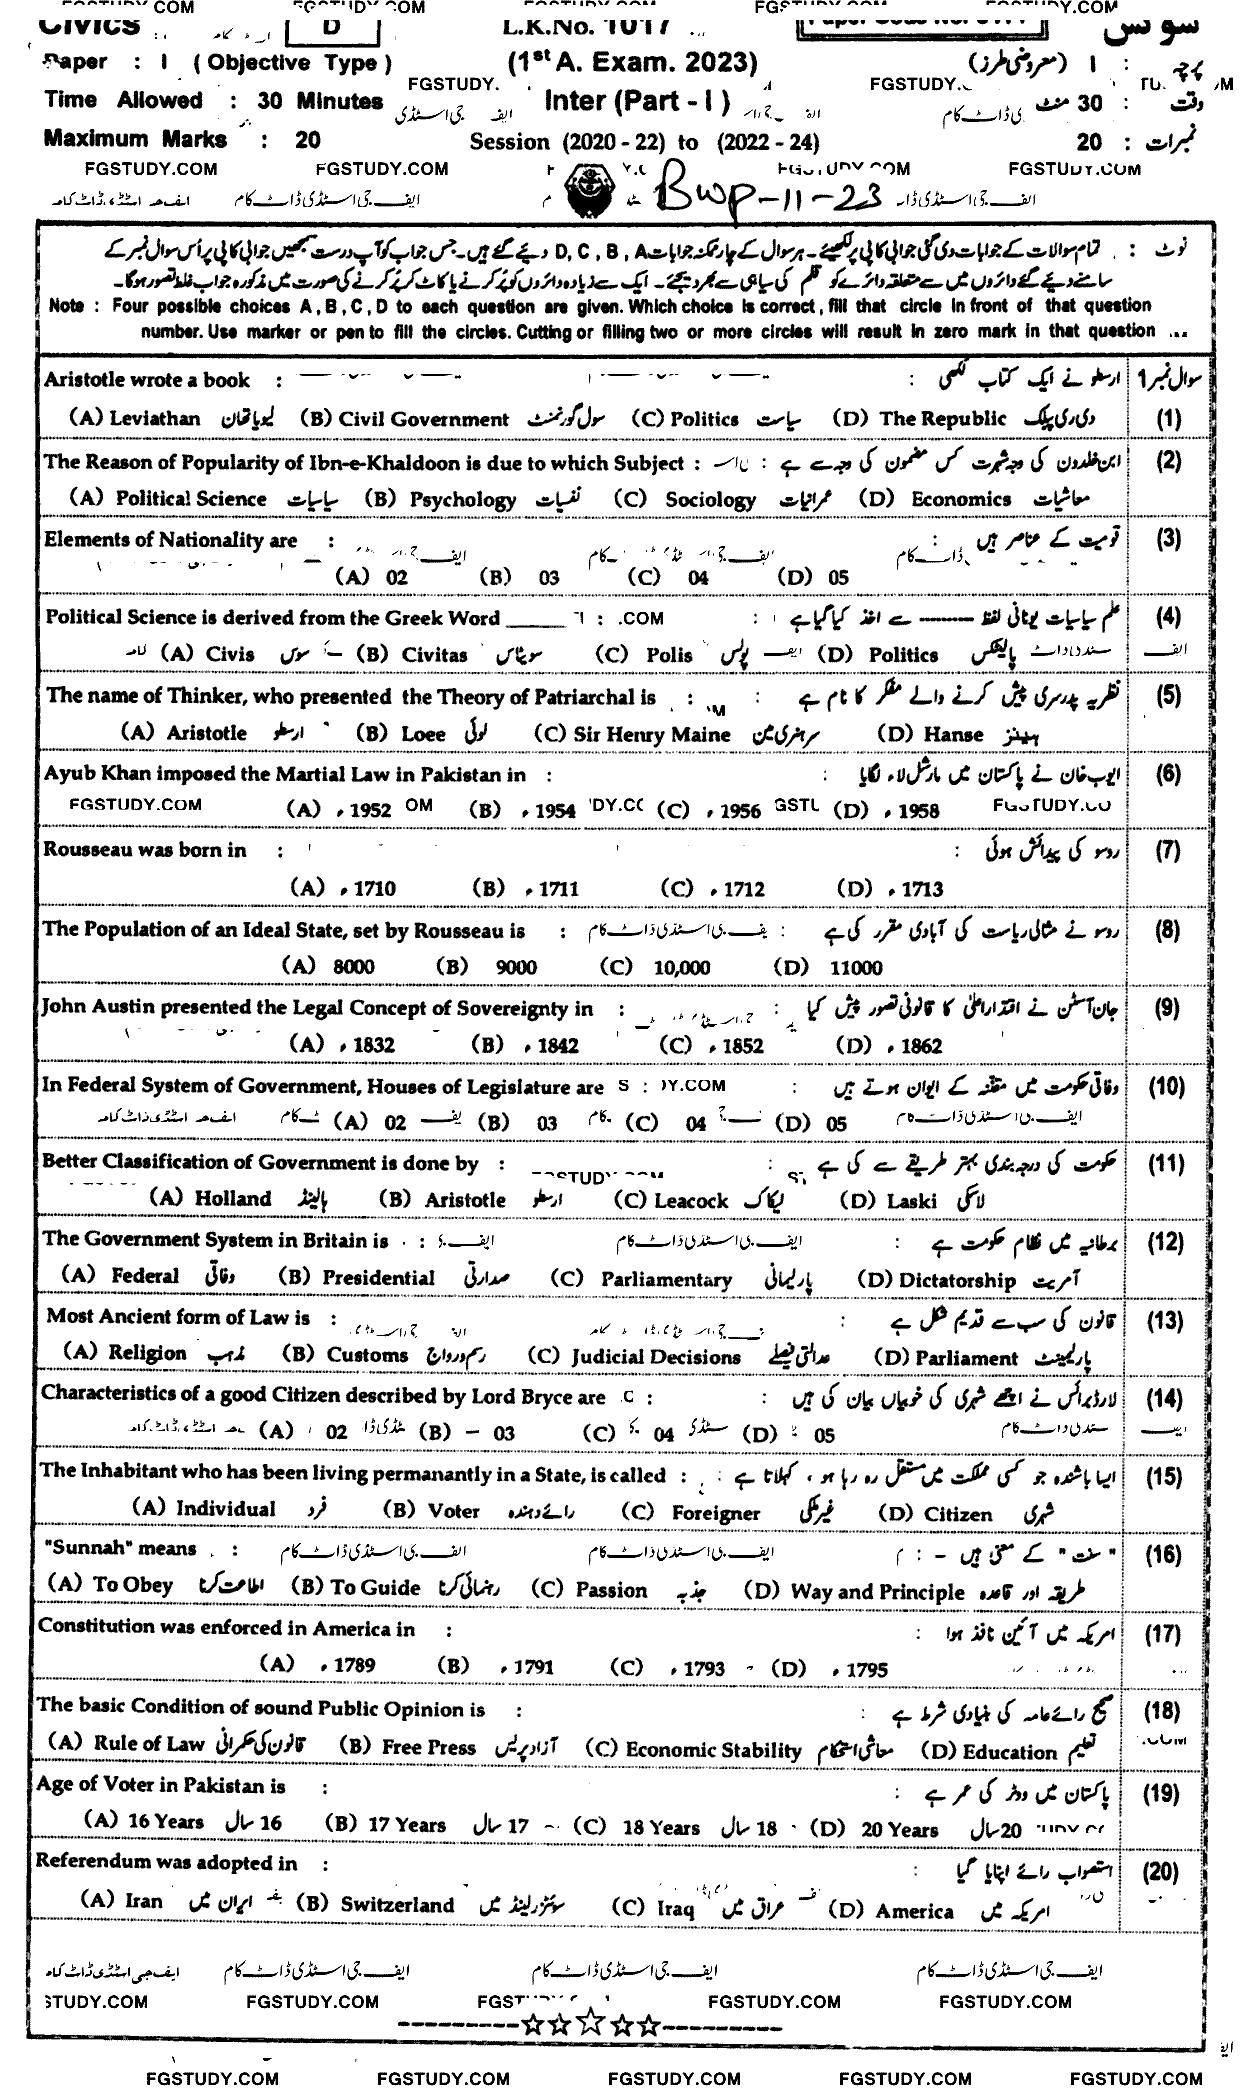 FGSTUDY.COM
CIVICS D L.K.No. 1017 سوکس
Paper : I ( Objective Type ) (1st A. Exam. 2023) پرچہ : I (معروضی طرز)
Time Allowed : 30 Minutes Inter (Part - I ) وقت : 30 منٹ
Maximum Marks : 20 Session (2020 - 22) to (2022 - 24) نمبرات : 20
FGSTUDY.COM FGSTUDY.COM FGSTUDY.COM
ایف جی اسٹڈی ڈاٹ کام BWP-11-23
نوٹ : تمام سوالات کے جوابات دی گئی جوابی کاپی پر لکھیئے۔ ہر سوال کے چار ممکنہ جوابات D, C, B, A دیئے گئے ہیں۔ جس جواب کو آپ درست سمجھیں جوابی کاپی پر اُس سوال نمبر کے
سامنے دیئے گئے دائروں میں سے متعلقہ دائرے کو قلم کی سیاہی سے بھر دیجئے۔ ایک سے زیادہ دائروں کو پُر کرنے یا کاٹ کر پُر کرنے کی صورت میں مذکورہ جواب غلط تصور ہوگا۔
Note : Four possible choices A , B , C , D to each question are given. Which choice is correct , fill that circle in front of that question
number. Use marker or pen to fill the circles. Cutting or filling two or more circles will result in zero mark in that question ...
Aristotle wrote a book : ارسطو نے ایک کتاب لکھی : سوال نمبر 1
(A) Leviathan لیویاتھان (B) Civil Government سول گورنمنٹ (C) Politics سیاست (D) The Republic دی ری پبلک (1)
The Reason of Popularity of Ibn-e-Khaldoon is due to which Subject : ابن خلدون کی وجہ شہرت کس مضمون کی وجہ سے ہے : (2)
(A) Political Science سیاسیات (B) Psychology نفسیات (C) Sociology عمرانیات (D) Economics معاشیات
Elements of Nationality are : قومیت کے عناصر ہیں (3)
(A) 02 (B) 03 (C) 04 (D) 05
Political Science is derived from the Greek Word ______ : علم سیاسیات یونانی لفظ -------- سے اخذ کیا گیا ہے : (4)
(A) Civis سوس (B) Civitas سویٹاس (C) Polis پولس (D) Politics پالیٹکس
The name of Thinker, who presented the Theory of Patriarchal is : نظریہ پدرسری پیش کرنے والے مفکر کا نام ہے : (5)
(A) Aristotle ارسطو (B) Loee لوئی (C) Sir Henry Maine سر ہنری مین (D) Hanse ہینز
Ayub Khan imposed the Martial Law in Pakistan in : ایوب خان نے پاکستان میں مارشل لاء لگایا : (6)
FGSTUDY.COM (A) ء 1952 (B) ء 1954 (C) ء 1956 (D) ء 1958 FGSTUDY.CO
Rousseau was born in : روسو کی پیدائش ہوئی : (7)
(A) ء 1710 (B) ء 1711 (C) ء 1712 (D) ء 1713
The Population of an Ideal State, set by Rousseau is : روسو نے مثالی ریاست کی آبادی مقرر کی ہے : (8)
(A) 8000 (B) 9000 (C) 10,000 (D) 11000
John Austin presented the Legal Concept of Sovereignty in : جان آسٹن نے اقتدار اعلیٰ کا قانونی تصور پیش کیا : (9)
(A) ء 1832 (B) ء 1842 (C) ء 1852 (D) ء 1862
In Federal System of Government, Houses of Legislature are : وفاقی حکومت میں مقننہ کے ایوان ہوتے ہیں : (10)
(A) 02 (B) 03 (C) 04 (D) 05 ایف جی اسٹڈی ڈاٹ کام
Better Classification of Government is done by : حکومت کی درجہ بندی بہتر طریقے سے کی ہے : (11)
(A) Holland ہالینڈ (B) Aristotle ارسطو (C) Leacock لیکاک (D) Laski لاسکی
The Government System in Britain is : برطانیہ میں نظام حکومت ہے : (12)
(A) Federal وفاقی (B) Presidential صدارتی (C) Parliamentary پارلیمانی (D) Dictatorship آمریت
Most Ancient form of Law is : قانون کی سب سے قدیم شکل ہے : (13)
(A) Religion مذہب (B) Customs رسم و رواج (C) Judicial Decisions عدالتی فیصلے (D) Parliament پارلیمینٹ
Characteristics of a good Citizen described by Lord Bryce are : لارڈ برائس نے اچھے شہری کی خوبیاں بیان کی ہیں : (14)
(A) 02 (B) 03 (C) 04 (D) 05
The Inhabitant who has been living permanantly in a State, is called : ایسا باشندہ جو کسی مملکت میں مستقل رہ رہا ہو ، کہلاتا ہے : (15)
(A) Individual فرد (B) Voter رائے دہندہ (C) Foreigner غیر ملکی (D) Citizen شہری
"Sunnah" means : " سنت " کے معنی ہیں : (16)
(A) To Obey اطاعت کرنا (B) To Guide رہنمائی کرنا (C) Passion جذبہ (D) Way and Principle طریقہ اور قاعدہ
Constitution was enforced in America in : امریکہ میں آئین نافذ ہوا : (17)
(A) ء 1789 (B) ء 1791 (C) ء 1793 (D) ء 1795
The basic Condition of sound Public Opinion is : صحیح رائے عامہ کی بنیادی شرط ہے : (18)
(A) Rule of Law قانون کی حکمرانی (B) Free Press آزاد پریس (C) Economic Stability معاشی استحکام (D) Education تعلیم
Age of Voter in Pakistan is : پاکستان میں ووٹر کی عمر ہے : (19)
(A) 16 Years 16 سال (B) 17 Years 17 سال (C) 18 Years 18 سال (D) 20 Years 20 سال
Referendum was adopted in : استصواب رائے اپنایا گیا : (20)
(A) Iran ایران میں (B) Switzerland سوئٹزرلینڈ میں (C) Iraq عراق میں (D) America امریکہ میں
ایف جی اسٹڈی ڈاٹ کام ایف جی اسٹڈی ڈاٹ کام ایف جی اسٹڈی ڈاٹ کام ایف جی اسٹڈی ڈاٹ کام
STUDY.COM FGSTUDY.COM FGSTUDY.COM FGSTUDY.COM
FGSTUDY.COM FGSTUDY.COM FGSTUDY.COM FGSTUDY.COM FGSTUDY.COM